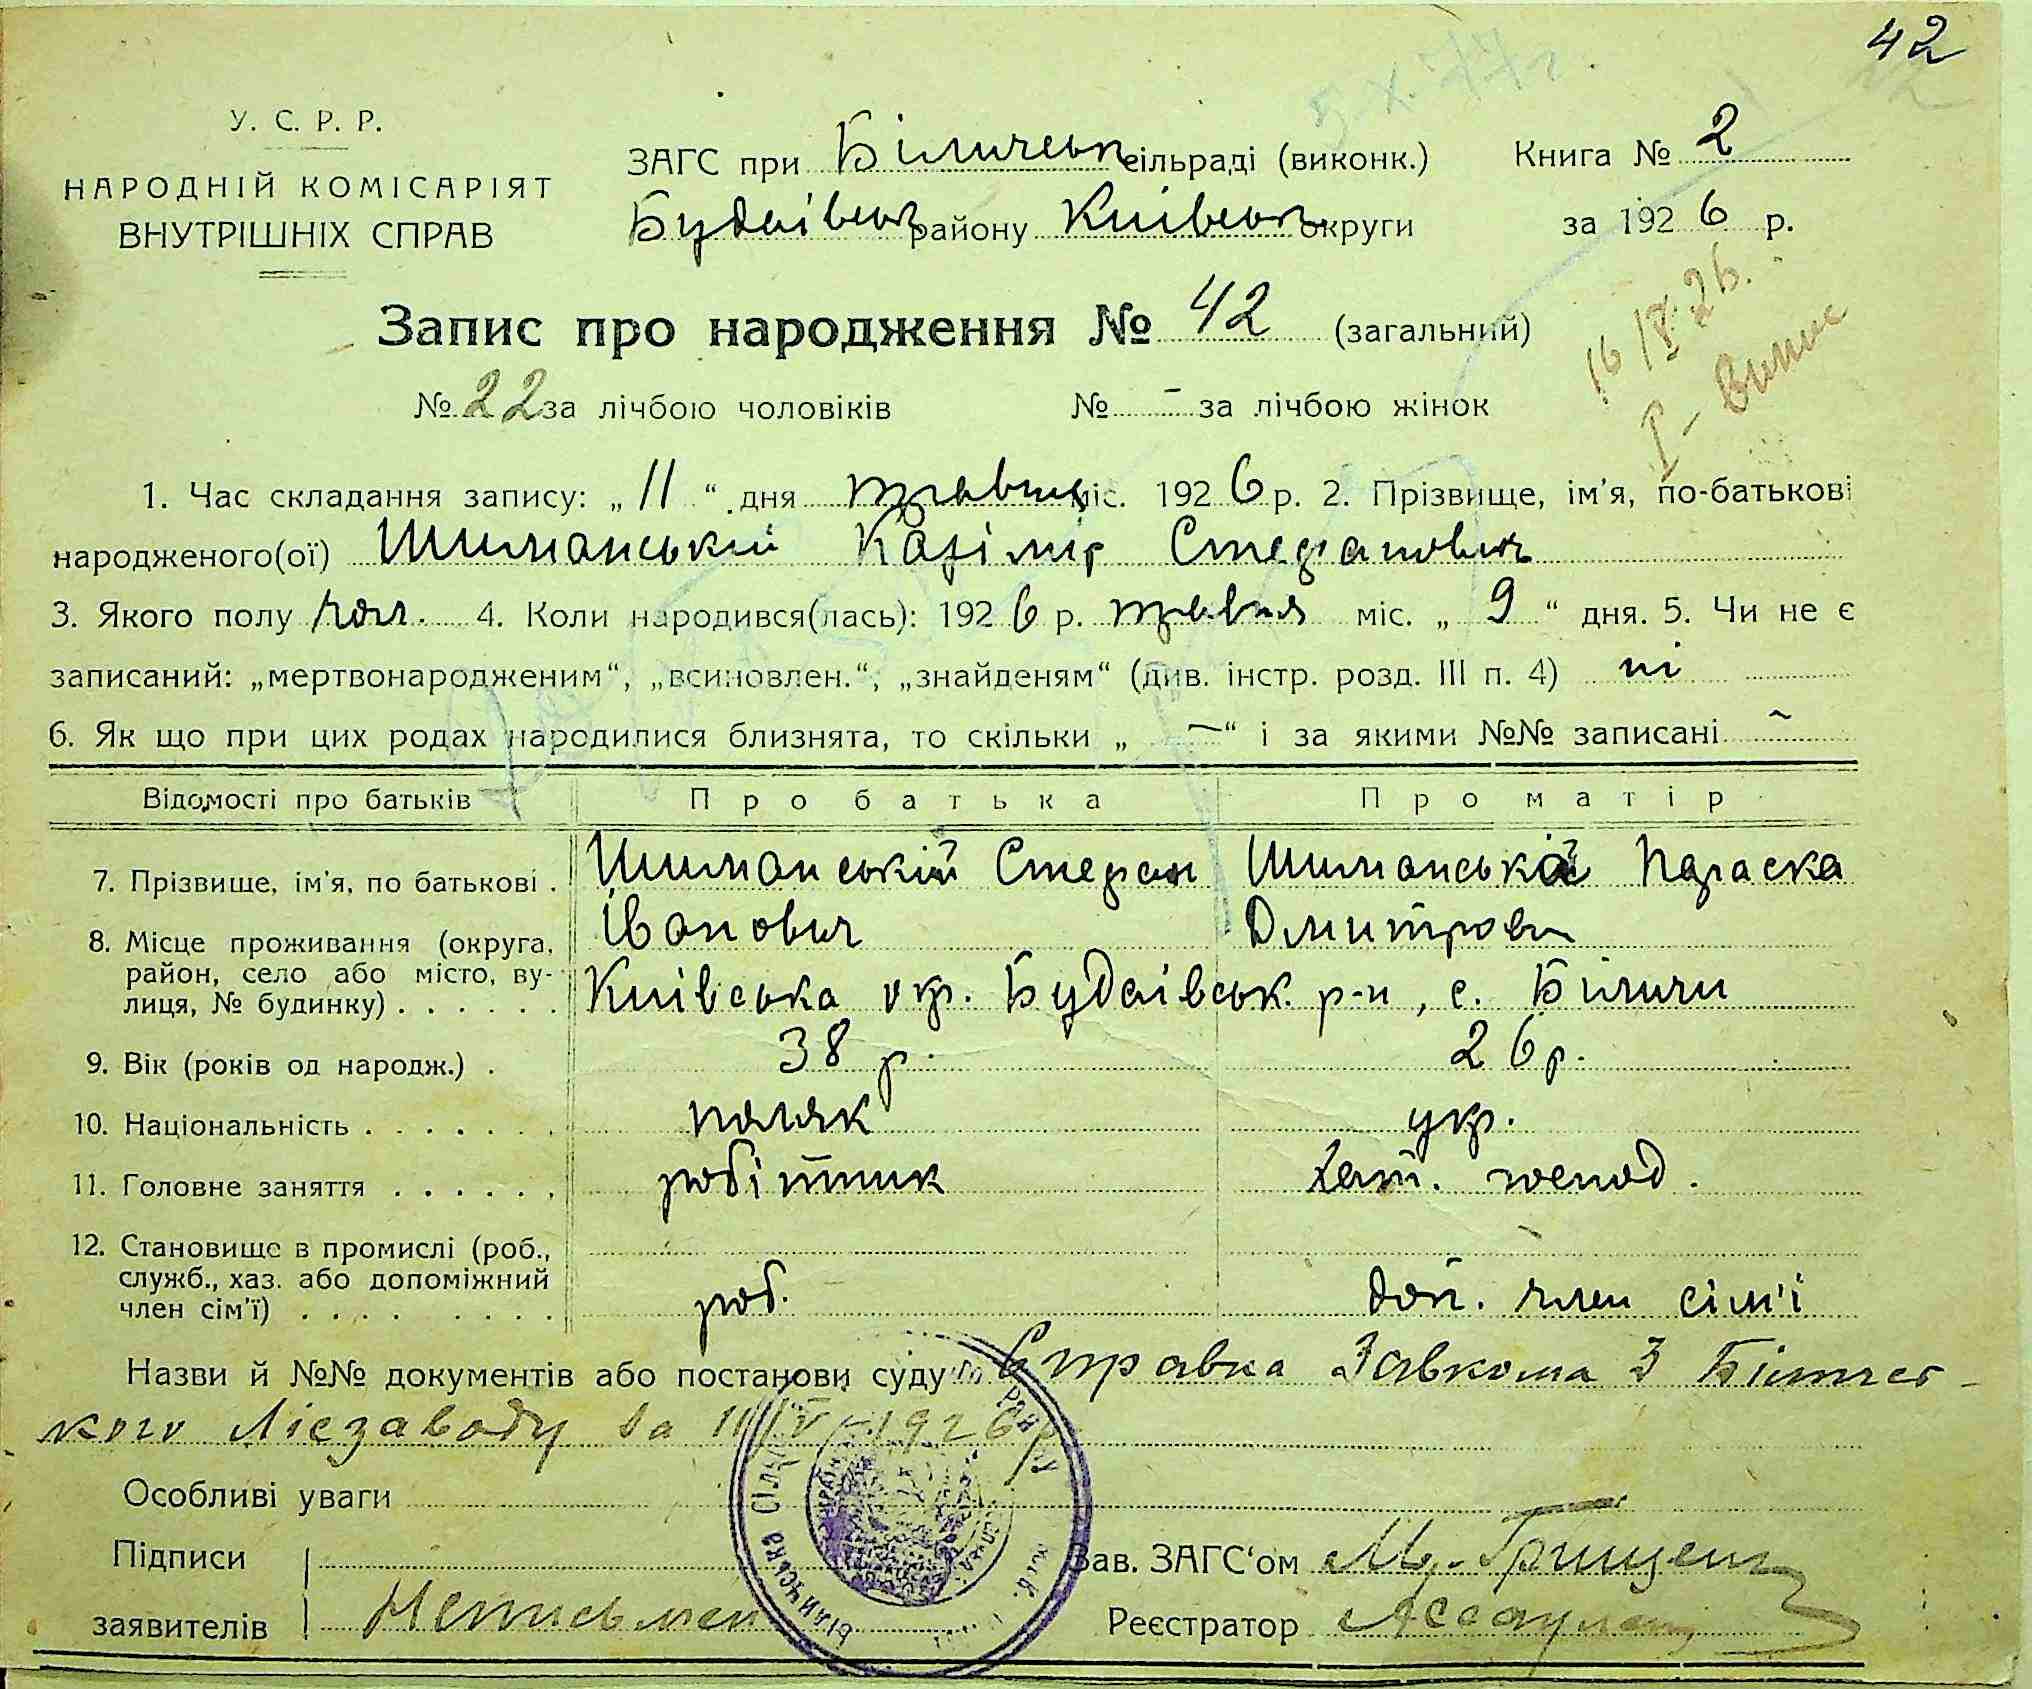 42
У. С. Р. Р.
НАРОДНІЙ КОМІСАРІЯТ
ВНУТРІШНІХ СПРАВ
ЗАГС при Біличськ сільраді (виконк.) Книга № 2
Будаівськ району Київськ округи за 1926 р.
Запис про народження № 42 (загальний)
№ 22 за лічбою чоловіків № - за лічбою жінок
16/V 26.
Випис
1. Час складання запису: „ 11 “ дня травня міс. 1926 р. 2. Прізвище, ім'я, по-батькові
народженого(ої) Шиманський Казімір Стефанович
3. Якого полу чол. 4. Коли народився(лась): 1926 р. травня міс. „ 9 “ дня. 5. Чи не є
записаний: „мертвонародженим“, „всиновлен.“, „знайденям“ (див. інстр. розд. III п. 4) ні
6. Як що при цих родах народилися близнята, то скільки „ — “ і за якими №№ записані ~
Відомості про батьків Про батька Про матір
7. Прізвище, ім'я, по батькові . Шиманській Стефан Шиманська Параска
Іванович Дмитровн
8. Місце проживання (округа,
район, село або місто, ву-
лиця, № будинку) . . . . . . Київська окр. Будаівськ. р-н, с. Біличи
9. Вік (років од народж.) . 38 р. 26 р.
10. Національність . . . . . . . поляк укр.
11. Головне заняття . . . . . . робітник хат. господ.
12. Становище в промислі (роб.,
служб., хаз. або допоміжний
член сім'ї) . . . . . . . . . роб. доп. член сім'і
Назви й №№ документів або постанови суду Справка Завкома З Біличсь-
кого Лісзаводу за 11/V-1926 р
Особливі уваги
Підписи
заявителів Неписьмен
Зав. ЗАГС‘ом
Реєстратор
БІЛИЧСЬКА СІЛЬ